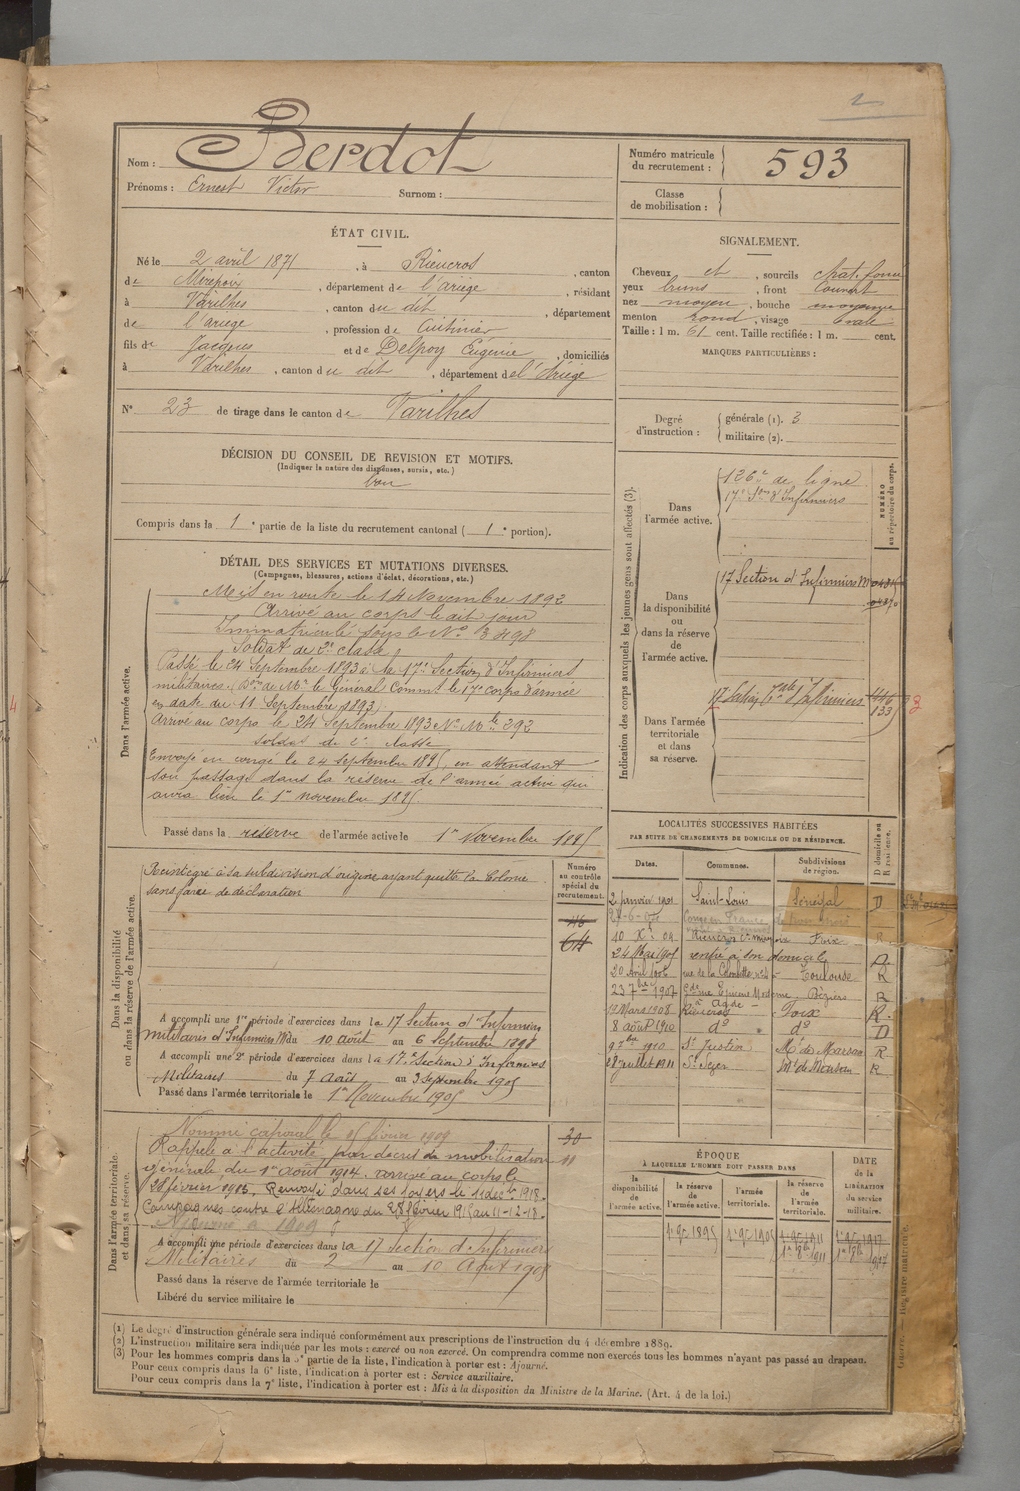 Nom : Berdot
Prénoms : Ernest Victor Surnom :
Numéro matricule du recrutement : 593
Classe de mobilisation :
ÉTAT CIVIL.
Né le 2 avril 1871, à Rieucros, canton
de Mirepoix, département de l'ariège, résidant
à Varilhes, canton du dit, département
de l'ariege, profession de Cuisinier
fils de Jacques et de Delpoy Eugénie, domiciliés
à Varilhes, canton du dit, département de l'Ariège
N° 23 de tirage dans le canton de Varilhes
SIGNALEMENT.
Cheveux et, sourcils chat. foncé
yeux bruns, front Couvert
nez moyen, bouche moyenne
menton rond, visage Ovale
Taille : 1 m. 61 cent. Taille rectifiée : 1 m. cent.
MARQUES PARTICULIÈRES :
Degré d'instruction : générale (1). 3
militaire (2).
DÉCISION DU CONSEIL DE REVISION ET MOTIFS.
(Indiquer la nature des dispenses, sursis, etc.)
bon
Compris dans la 1e partie de la liste du recrutement cantonal (1e portion).
DÉTAIL DES SERVICES ET MUTATIONS DIVERSES.
(Campagnes, blessures, actions d'éclat, décorations, etc.)
Dans l'armée active.
Mis en route le 14 Novembre 1892
Arrivé au corps le dit jour
Immatriculé sous le N° 3498
Soldat de 2e classe
Passé le 24 Septembre 1893 à la 17e Section d'Infirmiers
militaires. (Don de Mr le Général Commt le 17e corps d'armée
en date du 11 Septembre 1893)
Arrivé au corps le 24 Septembre 1893 N° Mle 292
soldat de 2e classe
Envoyé en congé le 24 septembre 1895 en attendant
son passage dans la réserve de l'armée active qui
aura lieu le 1er novembre 1895.
Passé dans la réserve de l'armée active le 1er Novembre 1895
Indication des corps auxquels les jeunes gens sont affectés (3).
NUMÉRO au répertoire du corps.
Dans l'armée active.
126e de ligne
17e Son d'Infirmiers
Dans la disponibilité ou dans la réserve de l'armée active.
17 Section d'Infirmiers M
Dans l'armée territoriale et dans sa réserve.
17 Section d'Infirmiers 446
133
Dans la disponibilité ou dans la réserve de l'armée active.
Réintégré à sa subdivision d'origine ayant quitté la Colonie
sans faire de déclaration
Numéro au contrôle spécial du recrutement.
46
64
A accompli une 1re période d'exercices dans la 17 Section d'Infirmiers
militaires du 10 août au 6 Septembre 1898
A accompli une 2e période d'exercices dans la 17e Section d'Infirmiers
Militaires du 7 Août au 3 Septembre 1905
Passé dans l'armée territoriale le 1er Novembre 1905
LOCALITÉS SUCCESSIVES HABITÉES
PAR SUITE DE CHANGEMENTS DE DOMICILE OU DE RÉSIDENCE.
Dates. Communes. Subdivisions de région. D domicile ou R résidence.
2 janvier 1901 Saint-Louis Sénégal D
27-6-04 Congé en France
10 Xbre 04 Rieucros Foix R
24 Mai 1905 rentré à son domicile
20 Avril 1906 rue de la Colombette Toulouse R
23 7bre 1907 Béziers R
Agde
14 Mars 1908 Rieucros Foix R
8 août 1910 do do D
9 7bre 1910 St Justin Mt de Marsan R
28 juillet 1911 Mt de Marsan R
Dans l'armée territoriale et dans sa réserve.
Nommé caporal le 15 février 1909
Rappelé à l'activité par décret de mobilisation
Générale du 1er août 1914. arrivé au corps le
28 février 1915. Renvoyé dans ses foyers le 11 decbre 1918.
Campagnes contre l'Allemagne du 28 février 1915 au 11-12-18.
30
A accompli une période d'exercices dans la 17 Section d'Infirmiers
Militaires du 2 au 10 Août 1909
Passé dans la réserve de l'armée territoriale le
Libéré du service militaire le
ÉPOQUE
À LAQUELLE L'HOMME DOIT PASSER DANS
la disponibilité de l'armée active. la réserve de l'armée active. l'armée territoriale. la réserve de l'armée territoriale.
DATE de la LIBÉRATION du service militaire.
1er 9bre 1895 1er 9bre 1905 1er 9bre 1911 1er 9bre 1917
(1) Le degré d'instruction générale sera indiqué conformément aux prescriptions de l'instruction du 4 décembre 1889.
(2) L'instruction militaire sera indiquée par les mots : exercé ou non exercé. On comprendra comme non exercés tous les hommes n'ayant pas passé au drapeau.
(3) Pour les hommes compris dans la 5e partie de la liste, l'indication à porter est : Ajourné.
Pour ceux compris dans la 6e liste, l'indication à porter est : Service auxiliaire.
Pour ceux compris dans la 7e liste, l'indication à porter est : Mis à la disposition du Ministre de la Marine. (Art. 4 de la loi.)